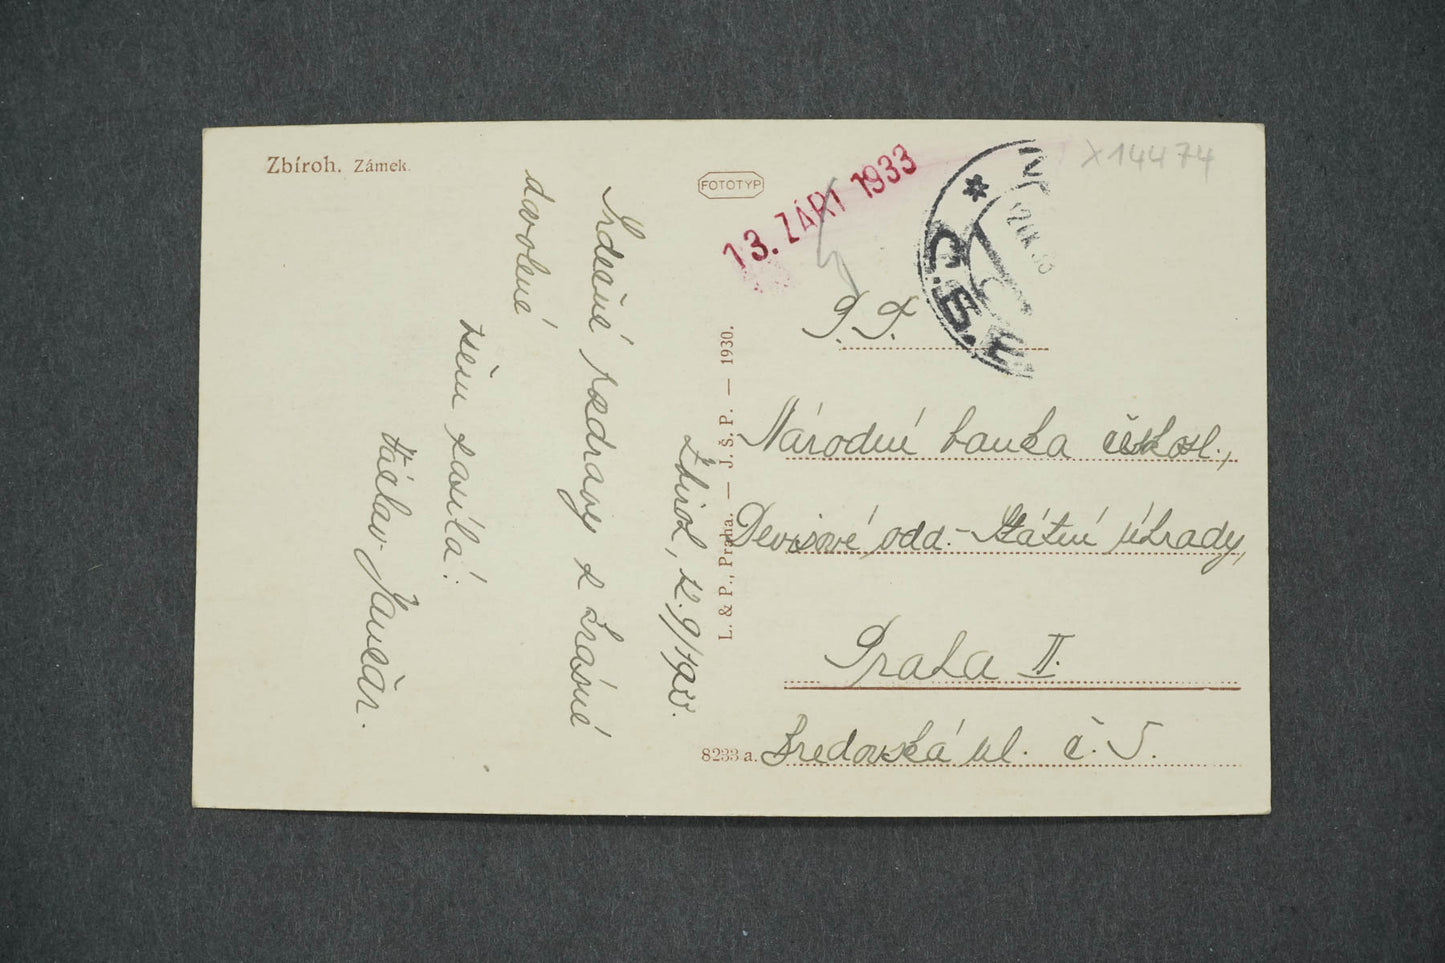 Zbíroh. Zámek.
FOTOTYP
13. ZÁŘÍ 1933
X14474
Zbiroh, 12.9/1933.
Srdečné pozdravy z krásné
dovolené
všem zasílá:
Václav Janečar.
L. & P., Praha. — J. Š. P. — 1930.
8233 a.
P. T.
Národní banka českosl.,
Devisové odd. - Státní úhrady,
Praha II.
Bredovská ul. č. 5.
Č.S.P.
12.IX.33